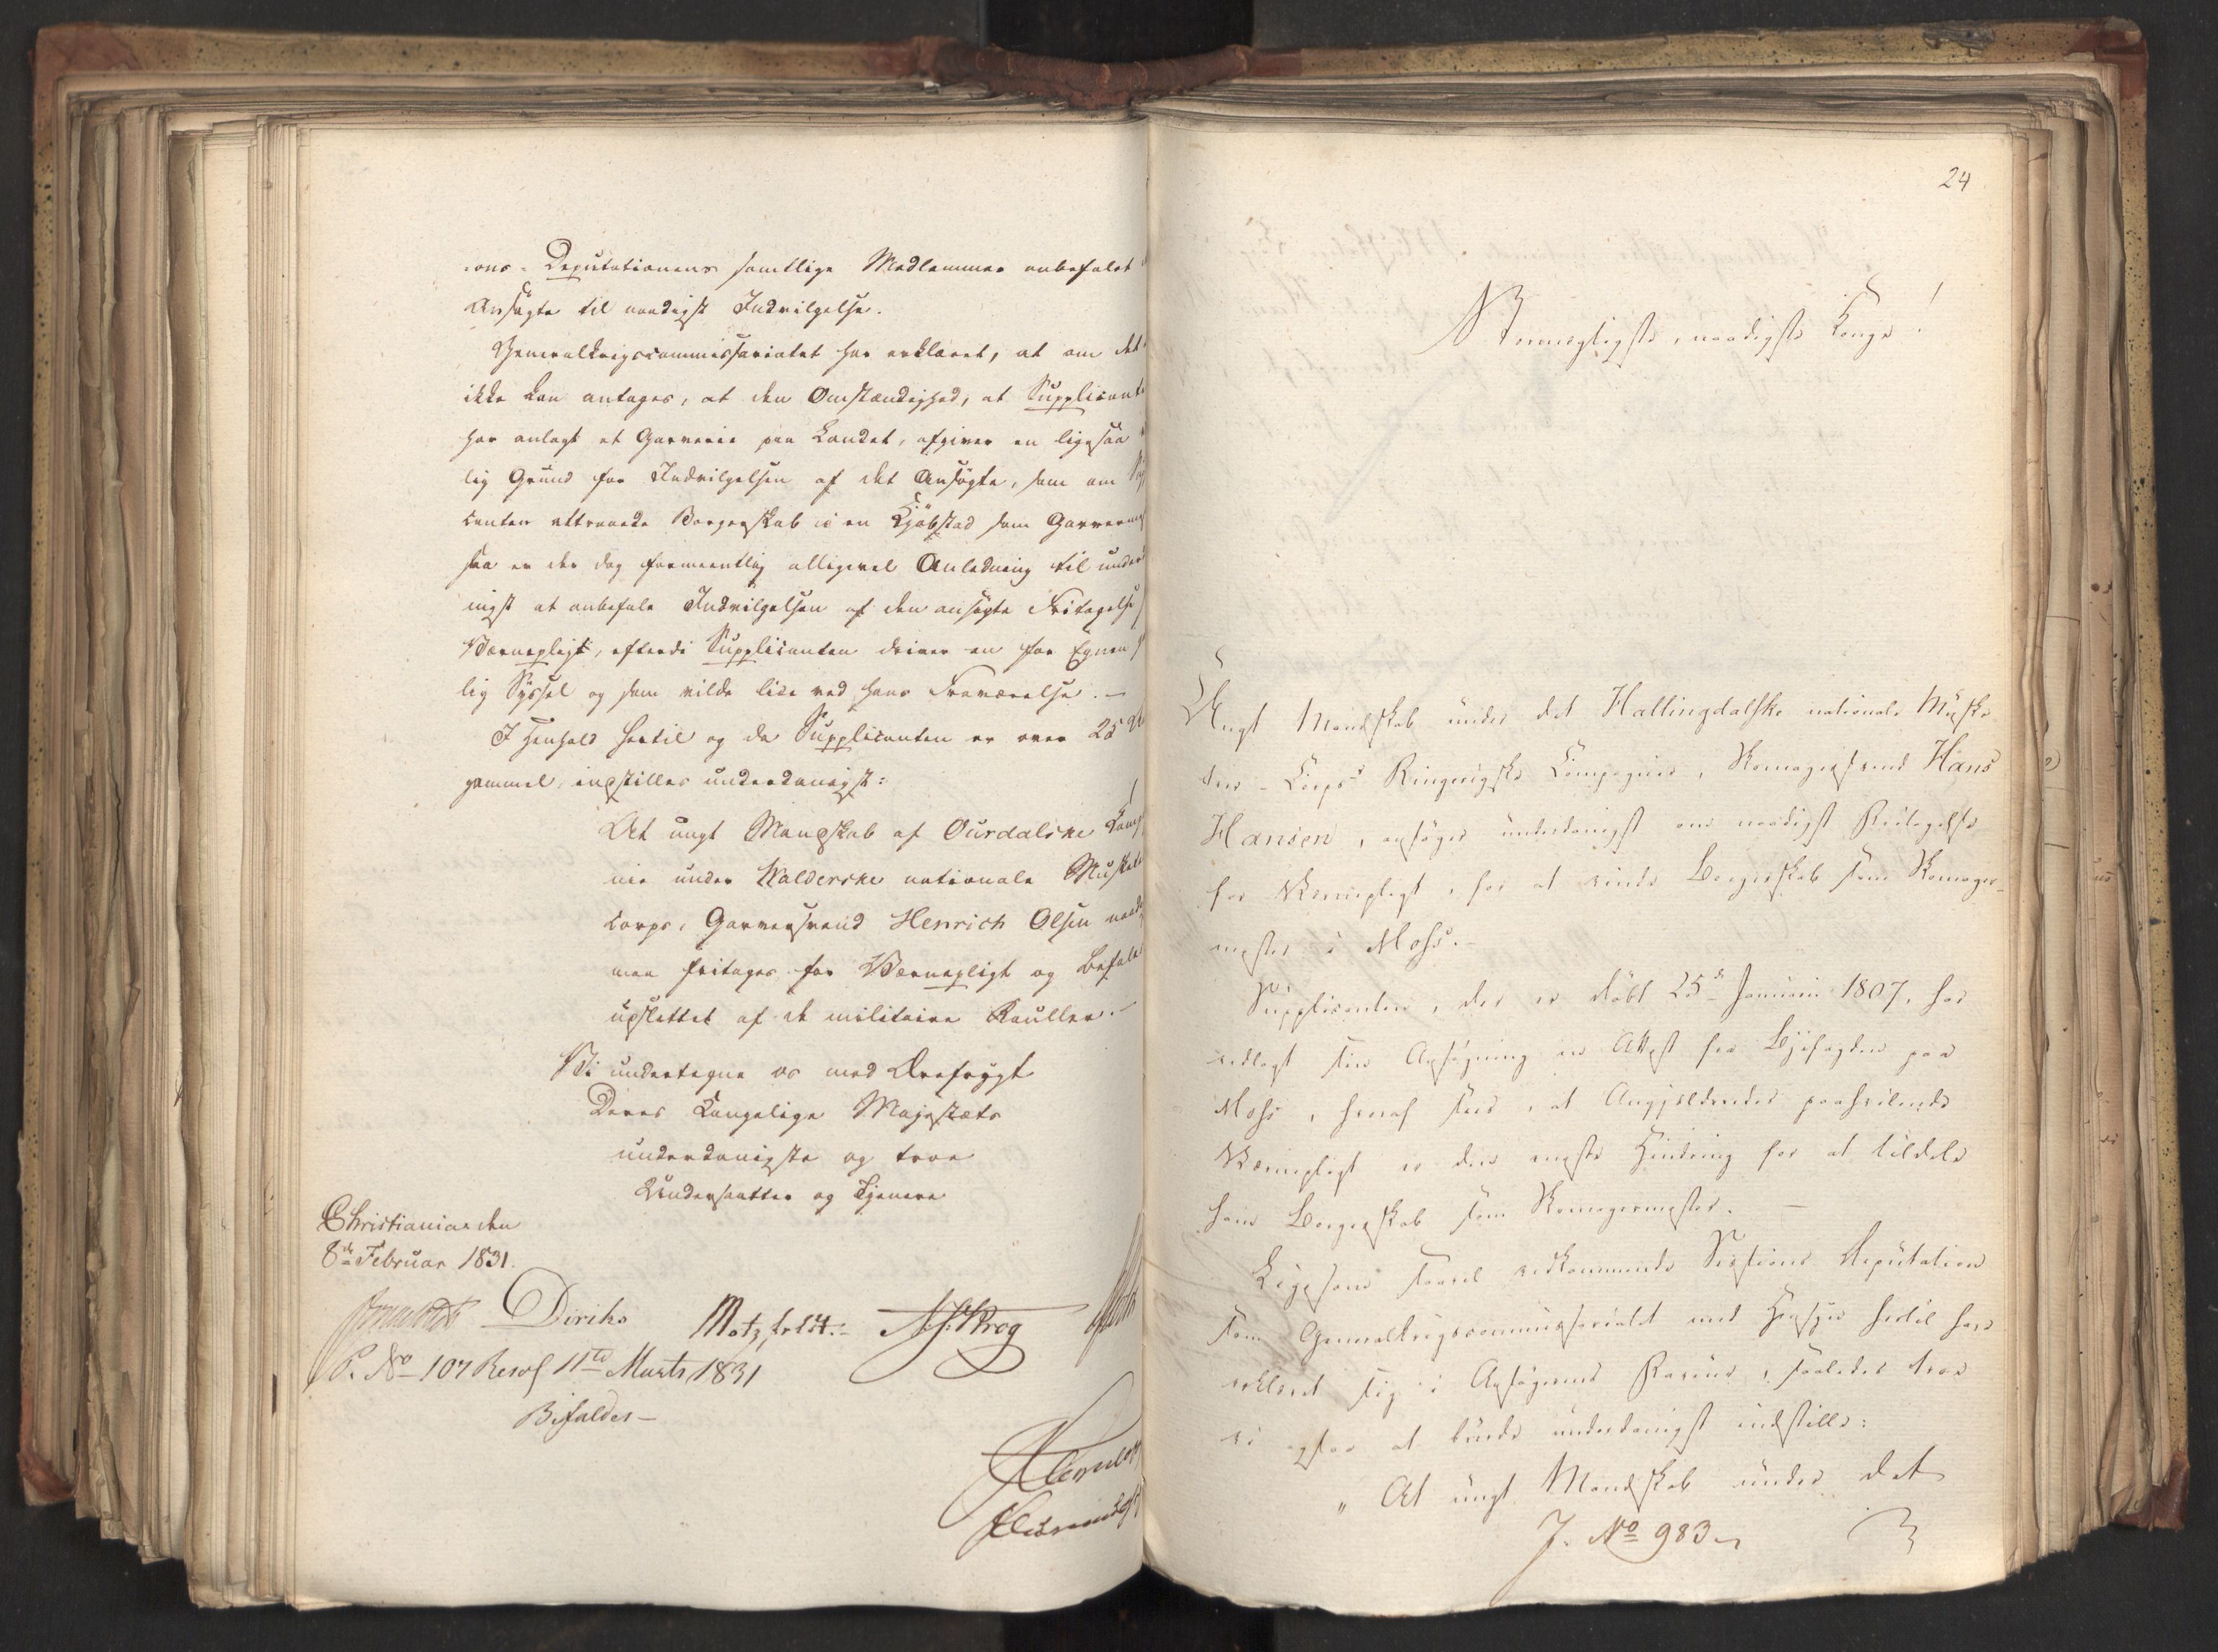 ons-Deputationens samtlige Medlemmer anbefalet
Ansøgte til naadigst Indvilgelse.
Generalkrigscommissariatet har erklæret, at om det
ikke kan antages, at den Omstændighed, at Supplicant
har anlagt et Garverie paa Landet, afgiver en ligesaa
lig Grund for Indvilgelsen af det Ansøgte, som om
canten attraaede Borgerskab i en Kjøbstad som Garver
saa er der dog formeentlig alligevel Anledning til under
nigst at anbefale Indvilgelsen af den ansøgte Fritagelse
Værnepligt, efterdi Supplicanten driver en for Egnen
lig Syssel og som vilde lide ved hans Fraværelse. –
I Henhold hertil og da Supplicanten er over 25
gammel, indstilles underdanigst:
At ungt Mandskab af Ourdalske Comp
nie under Walderske nationale Musket
corps, Garversvend Henrich Olsen naad
maa fritages for Værnepligt og befales
udslettet af de militaire Rouller. –
Vi undertegne os med Ærefrygt
Deres Kongelige Majestæts
underdanigste og troe
Undersaatter og Tjenere
Christiania den
8de Februar 1831.
Diriks Motzfeldt. Krog
P. No 107 Resol 11te Marts 1831
Bifaldes –
24
Stormægtigste, naadigste Konge!
Ungt Mandskab under det Hallingdalske nationale Muske
teer-Corps's Ringerigske Compagnie, Skomagersvend Hans
Hansen, ansøger underdanigst om naadigst Fritagelse
for Værnepligt, for at vinde Borgerskab som Skomager-
mester i Moss. –
Supplicanten, der er døbt 25de Januarii 1807, har
vedlagt sin Ansøgning en Attest fra Byefogden paa
Moss, hvoraf sees, at Angjeldendes paahvilende
Værnepligt er den eneste Hindring for at tildele
ham Borgerskab som Skomagermester. –
Ligesom saavel vedkommende Sessions Deputation
som Generalkrigscommissariatet med Hensyn hertil have
erklæret sig i Ansøgerens Faveur, saaledes troe
vi ogsaa at burde underdanigst indstille:
" At ungt Mandskab under det
J. No 983